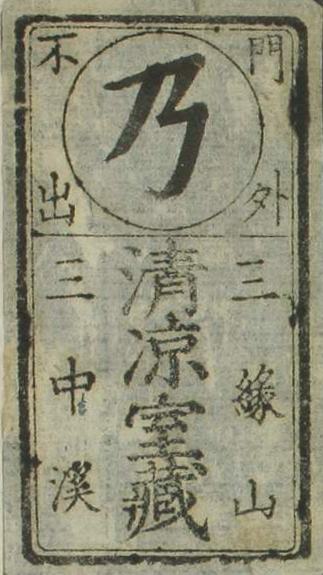 門外
不出
乃
三緣山
清凉室藏
三中溪